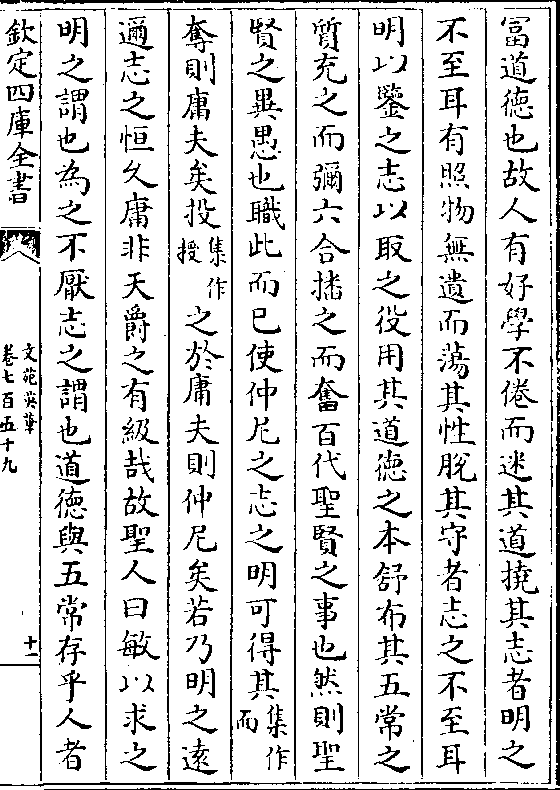 富道德也故人有好學不倦而迷其道撓其志者明之
不至耳有照物無遺而蕩其性脫其守者志之不至耳
明以鑒之志以取之役用其道德之本舒布其五常之
質充之而彌六合播之而奮百代聖賢之事也然則聖
賢之異愚也職此而已使仲尼之志之明可得其集作而
奪則庸夫矣投集作授之於庸夫則仲尼矣若乃明之遠
邇志之恒久庸非天爵之有級哉故聖人曰敏以求之
明之謂也為之不厭志之謂也道德與五常存乎人者
欽定四庫全書
文苑英華
卷七百五十九
十一